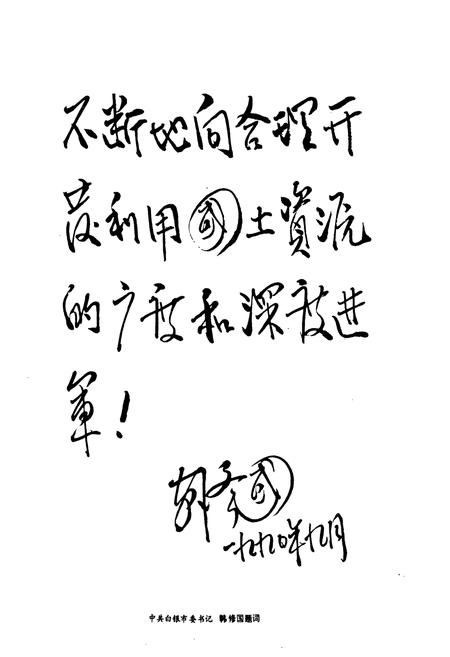 不断地向合理开
发利用國土資源
的广度和深度进
軍！
韩修國
一九九〇年九月
中共白银市委书记 韩修国题词